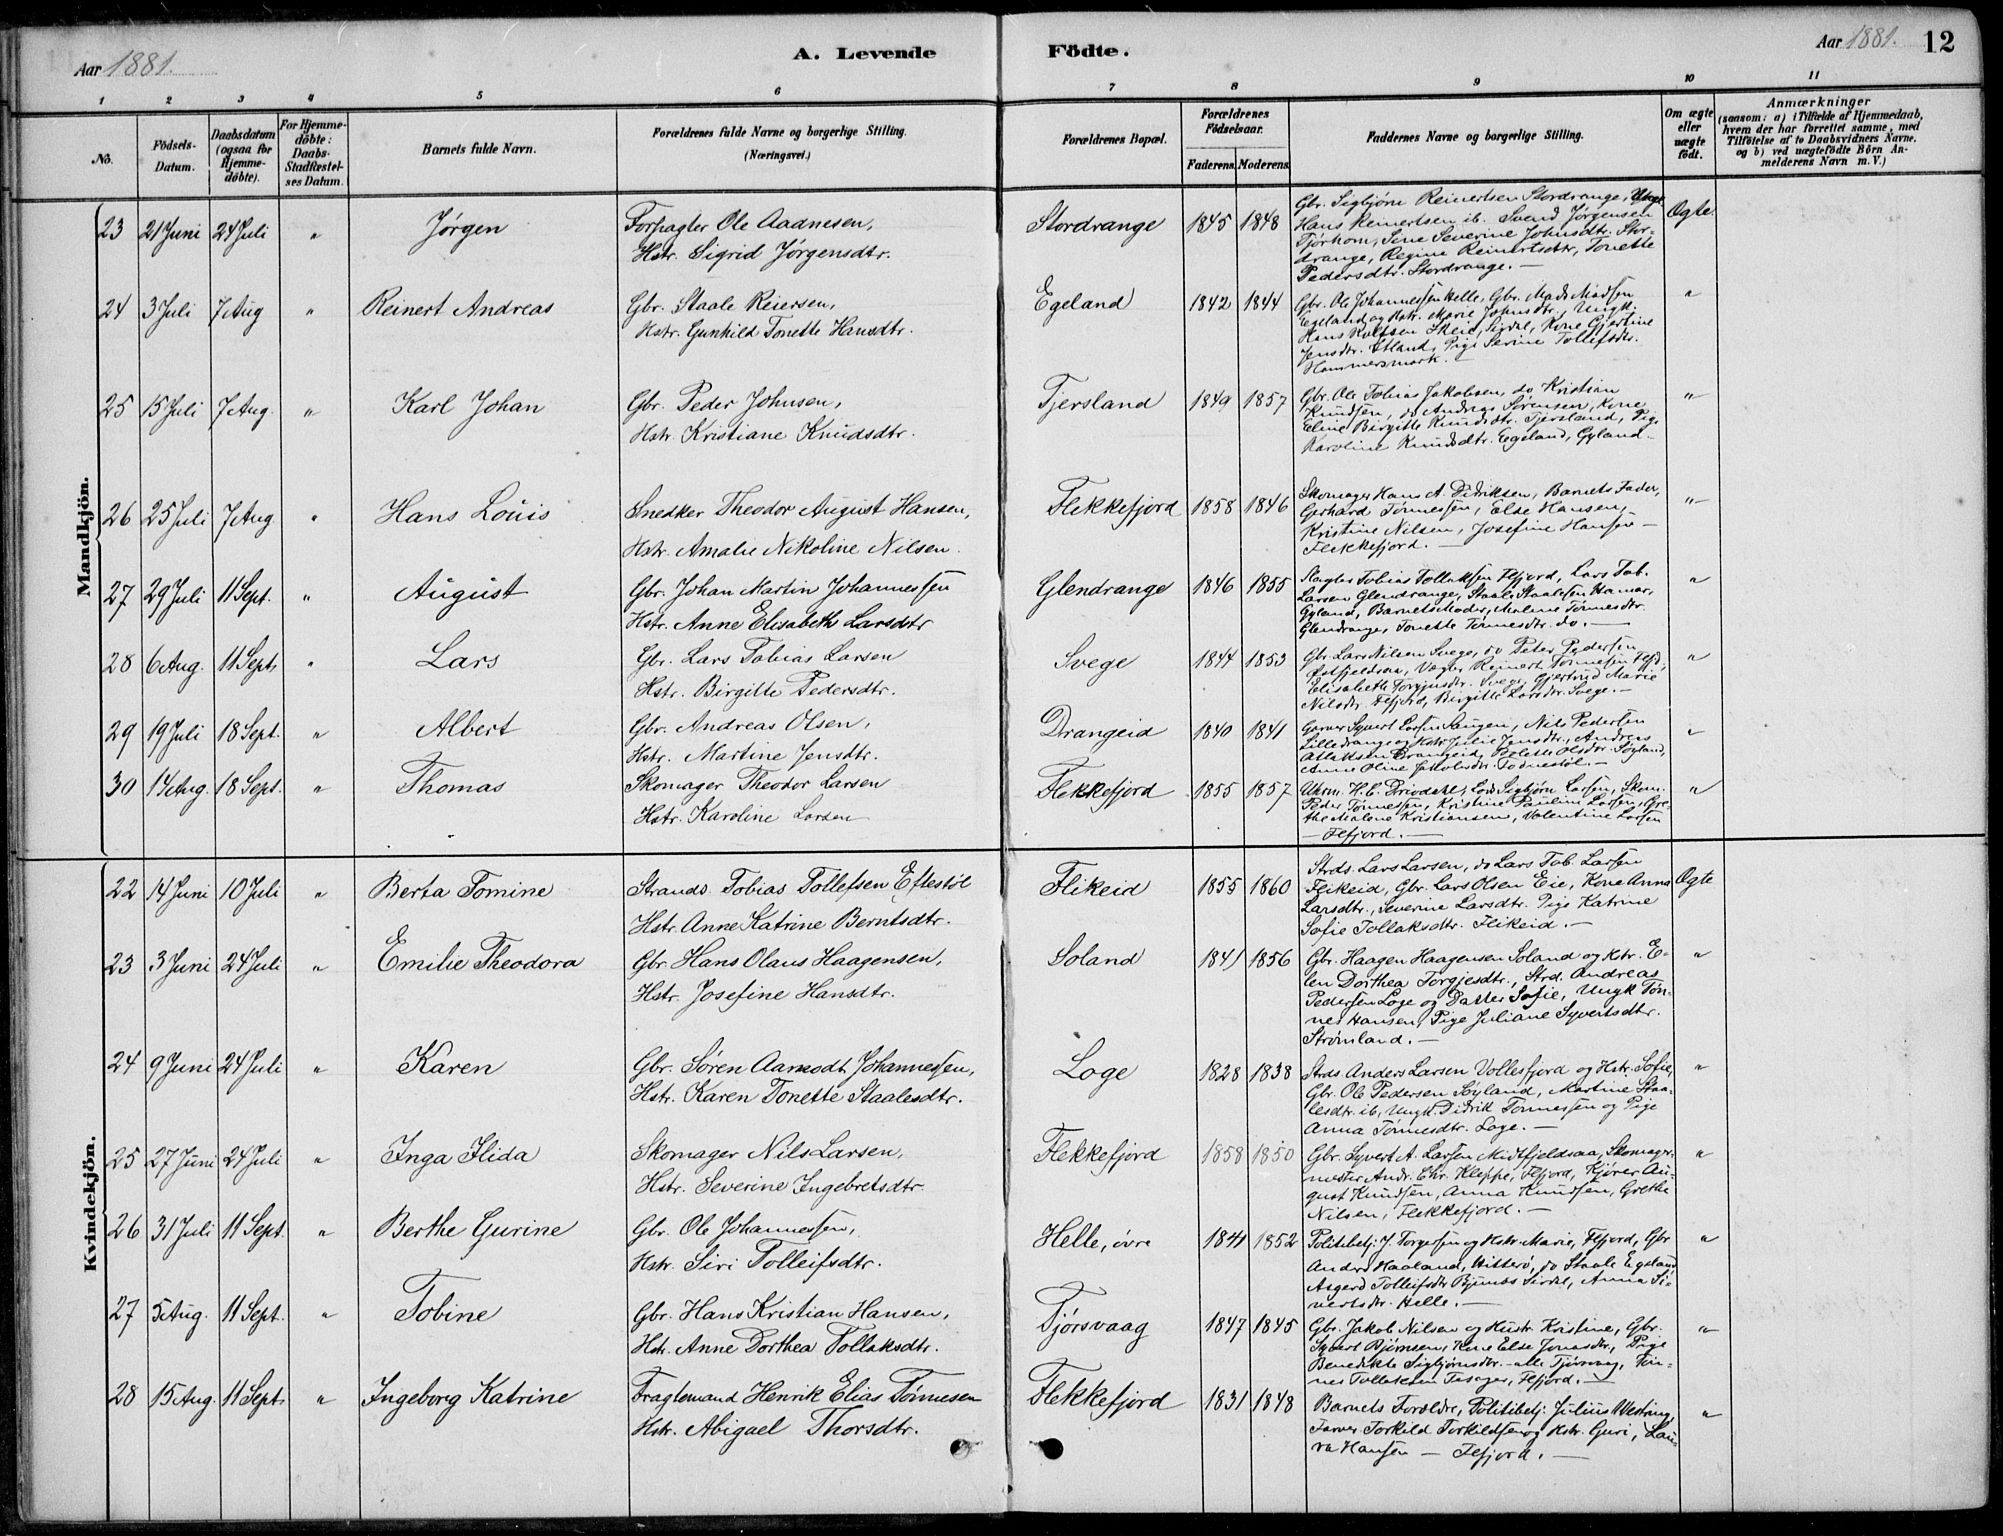 Aar 1881.
A. Levende Födte.
Aar 1881. 12
1 2 3 4 5 6 7 8 9 10 11
No.
Födsels-Datum.
Daabsdatum (ogsaa for Hjemme-döbte).
For Hjemme-döbte: Daabs-Stadfæstel-ses Datum.
Barnets fulde Navn.
Forældrenes fulde Navne og borgerlige Stilling. (Næringsvei.)
Forældrenes Bopæl.
Forældrenes Födselsaar.
Faderens. Moderens.
Faddernes Navne og borgerlige Stilling.
Om ægte eller uægte födt.
Anmærkninger
(saasom: a) i Tilfælde af Hjemmedaab, hvem der har forrettet samme, med Tilföielse af to Daabsvidners Navne, og b) ved uægtefödte Börn An-melderens Navn m. V.)
Mandkjön.
23 21 Juni 24 Juli " Jørgen Forpagter Ole Aadnesen, Stordrange 1845 1848 Gbr. Sigbjørn Reinertsen Stordrange, Ungk. Ægte.
Hstr. Sigrid Jørgensdtr. Hans Reinertsen ib. Svend Jørgensen
Tjørhom, Sine Severine Johnsdtr. Stor-
drange, Regine Reinertsdtr, Tonette
Pedersdtr. Stordrange. —
24 3 Juli 7 Aug " Reinert Andreas Gbr. Staale Reiersen, Egeland 1842 1844 Gbr. Ole Johannessen Helle, Gbr. Mads Madsen "
Hstr. Gunhild Tonette Hansdtr. Egeland og Hstr. Marie Johnsdtr, Ungk.
Hans Skeie, Sirdal, Kone Gjertine
Jensdtr. Pige Serine Tollefsdtr.
Hammersmark. —
25 15 Juli 7 Aug. " Karl Johan Gbr. Peder Johnsen, Tjersland 1849 1857 Gbr. Ole Tobias Jakobsen, do Kristian "
Hstr. Kristiane Knudsdtr. Knudsen, do Andreas Sørensen, Kone
Eline Birgitte Knudsdtr. Tjersland, Pige
Karoline Knudsdtr. Egeland, Gyland —
26 25 Juli 7 Aug " Hans Louis Snedker Theodor August Hansen, Flekkefjord 1858 1846 Skomager Hans A. Didriksen, Barnets Fader, "
Hstr. Amalie Nikoline Nilsen. Gerhard Tønnessen, Else Hansen,
Kristine Nilsen, Josefine Hansen —
Flekkefjord. —
27 29 Juli 11 Sept. " August Gbr. Johan Martin Johannessen Glendrange 1846 1855 Tobias Tollaksen Flfjord, Lars Tob. "
Hstr. Anne Elisabeth Larsdtr Larsen Glendrange, Staale Staalesen Hamar,
Gyland, Barnets Moder, Malene Tønnesdtr.
Glendrange, Tonette Tønnesdtr. do. —
28 6 Aug. 11 Sept. " Lars Gbr. Lars Tobias Larsen Svege 1844 1853 Gbr. Lars Nilsen Svege, do Peter Pedersen "
Hstr. Birgitte Pedersdtr. Østfjeldsaa, Vægter Reinert Tønnesen Flfjd,
Elisabeth Svege, Gjertrud Marie
Nilsdtr. Flfjord, Birgitte Larsdtr. Svege. —
29 19 Juli 18 Sept. " Albert Gbr. Andreas Olsen, Drangeid 1840 1841 Garver Syvert Larsen Saugen, Nils Pedersen "
Hstr. Martine Jensdtr. Lilledrange og Hstr. Julie Jensdtr., Andreas
Drangeid, Olsdtr. Søyland,
Anne Oline Jakobsdtr. —
30 14 Aug. 18 Sept. " Thomas Skomager Theodor Larsen Flekkefjord 1855 1857 Uhrm. H. C. Lods Sigbjørn Larsen, Skom. "
Hstr. Karoline Larsen Peder Tønnessen, Kristine Pauline Larsen, Gre-
the Malene Kristiansen, Valentine Larsen
— Flfjord. —
Kvindekjön.
22 14 Juni 10 Juli " Berta Tomine Strands. Tobias Tollefsen Eftestøl Flikeid 1855 1860 Strds. Lars Larsen, do Lars Tob. Larsen Ægte
Hstr. Anne Katrine Berntsdtr. Flikeid, Gbr. Lars Olsen Eie, Kone Anna
Larsdtr., Severine Larsdtr. Pige Katrine
Sofie Tollaksdtr. Flikeid. —
23 3 Juni 24 Juli " Emilie Theodora Gbr. Hans Olaus Haagensen, Soland 1841 1856 Gbr. Haagen Haagensen Soland og Hstr. E- "
Hstr. Josefine Hansdtr. len Dorthea Torgjesdtr., Strd. Andreas
Pedersen Loge og Datter Sofie, Ungk Tøn-
nes Hansen, Pige Juliane Syvertsdtr.
Strømland. —
24 9 Juni 24 Juli " Karen Gbr. Søren Aamodt Johannessen, Loge 1828 1838 Strds. Anders Larsen Vollesfjord og Hstr. Sofie, "
Hstr. Karen Tonette Staalesdtr. Gbr. Ole Pedersen Søyland, Martine Staa-
lesdtr. ib, Ungk. Didrik Tønnessen og Pige
Anna Tønnesdtr. Loge. —
25 27 Juni 24 Juli " Inga Ilida Skomager Nils Larsen, Flekkefjord 1858 1850 Gbr. Syvert A. Larsen Midtfjeldsaa, Skomager- "
Hstr. Severine Ingebretsdtr. mester Andr. Chr. Kleppe, Flfjord, Kjører Au-
gust Knudsen, Anna Knudsen, Grethe
Nilsen, Flekkefjord. —
26 31 Juli 11 Sept. " Berthe Gurine Gbr. Ole Johannessen, Helle, övre 1841 1852 Politibetj. J. Torgersen og Hstr. Marie, Flfjord, Gbr "
Hstr. Siri Tolleifsdtr. Anders Haaland, Hitterø, do Staale Egeland
Asgerd Tolleifsdtr Sirdal, Anna Si-
vertsdtr. Helle. —
27 5 Aug. 11 Sept. " Tobine Gbr. Hans Kristian Hansen, Tjørsvaag 1847 1845 Gbr. Jakob Nilsen og Hustr. Kristine, Gbr. "
Hstr. Anne Dorthea Tollaksdtr. Syvert Bjørnsen, Kone Else Jonasdtr, Pige
Benedikte Sigbjørnsdtr. — alle Tjørsvaag, Tøn-
nes Tollaksen Flfjord. —
28 15 Aug. 11 Sept. " Ingeborg Katrine Fragtemand Henrik Elias Tønnesen Flekkefjord 1831 1848 Barnets Forældre, Politibetj. Julius Westring, "
Hstr. Abigael Thorsdtr. Farver Torkild Torkildsen og Hstr. Guri, Lau-
ra Hansen — Flfjord. —